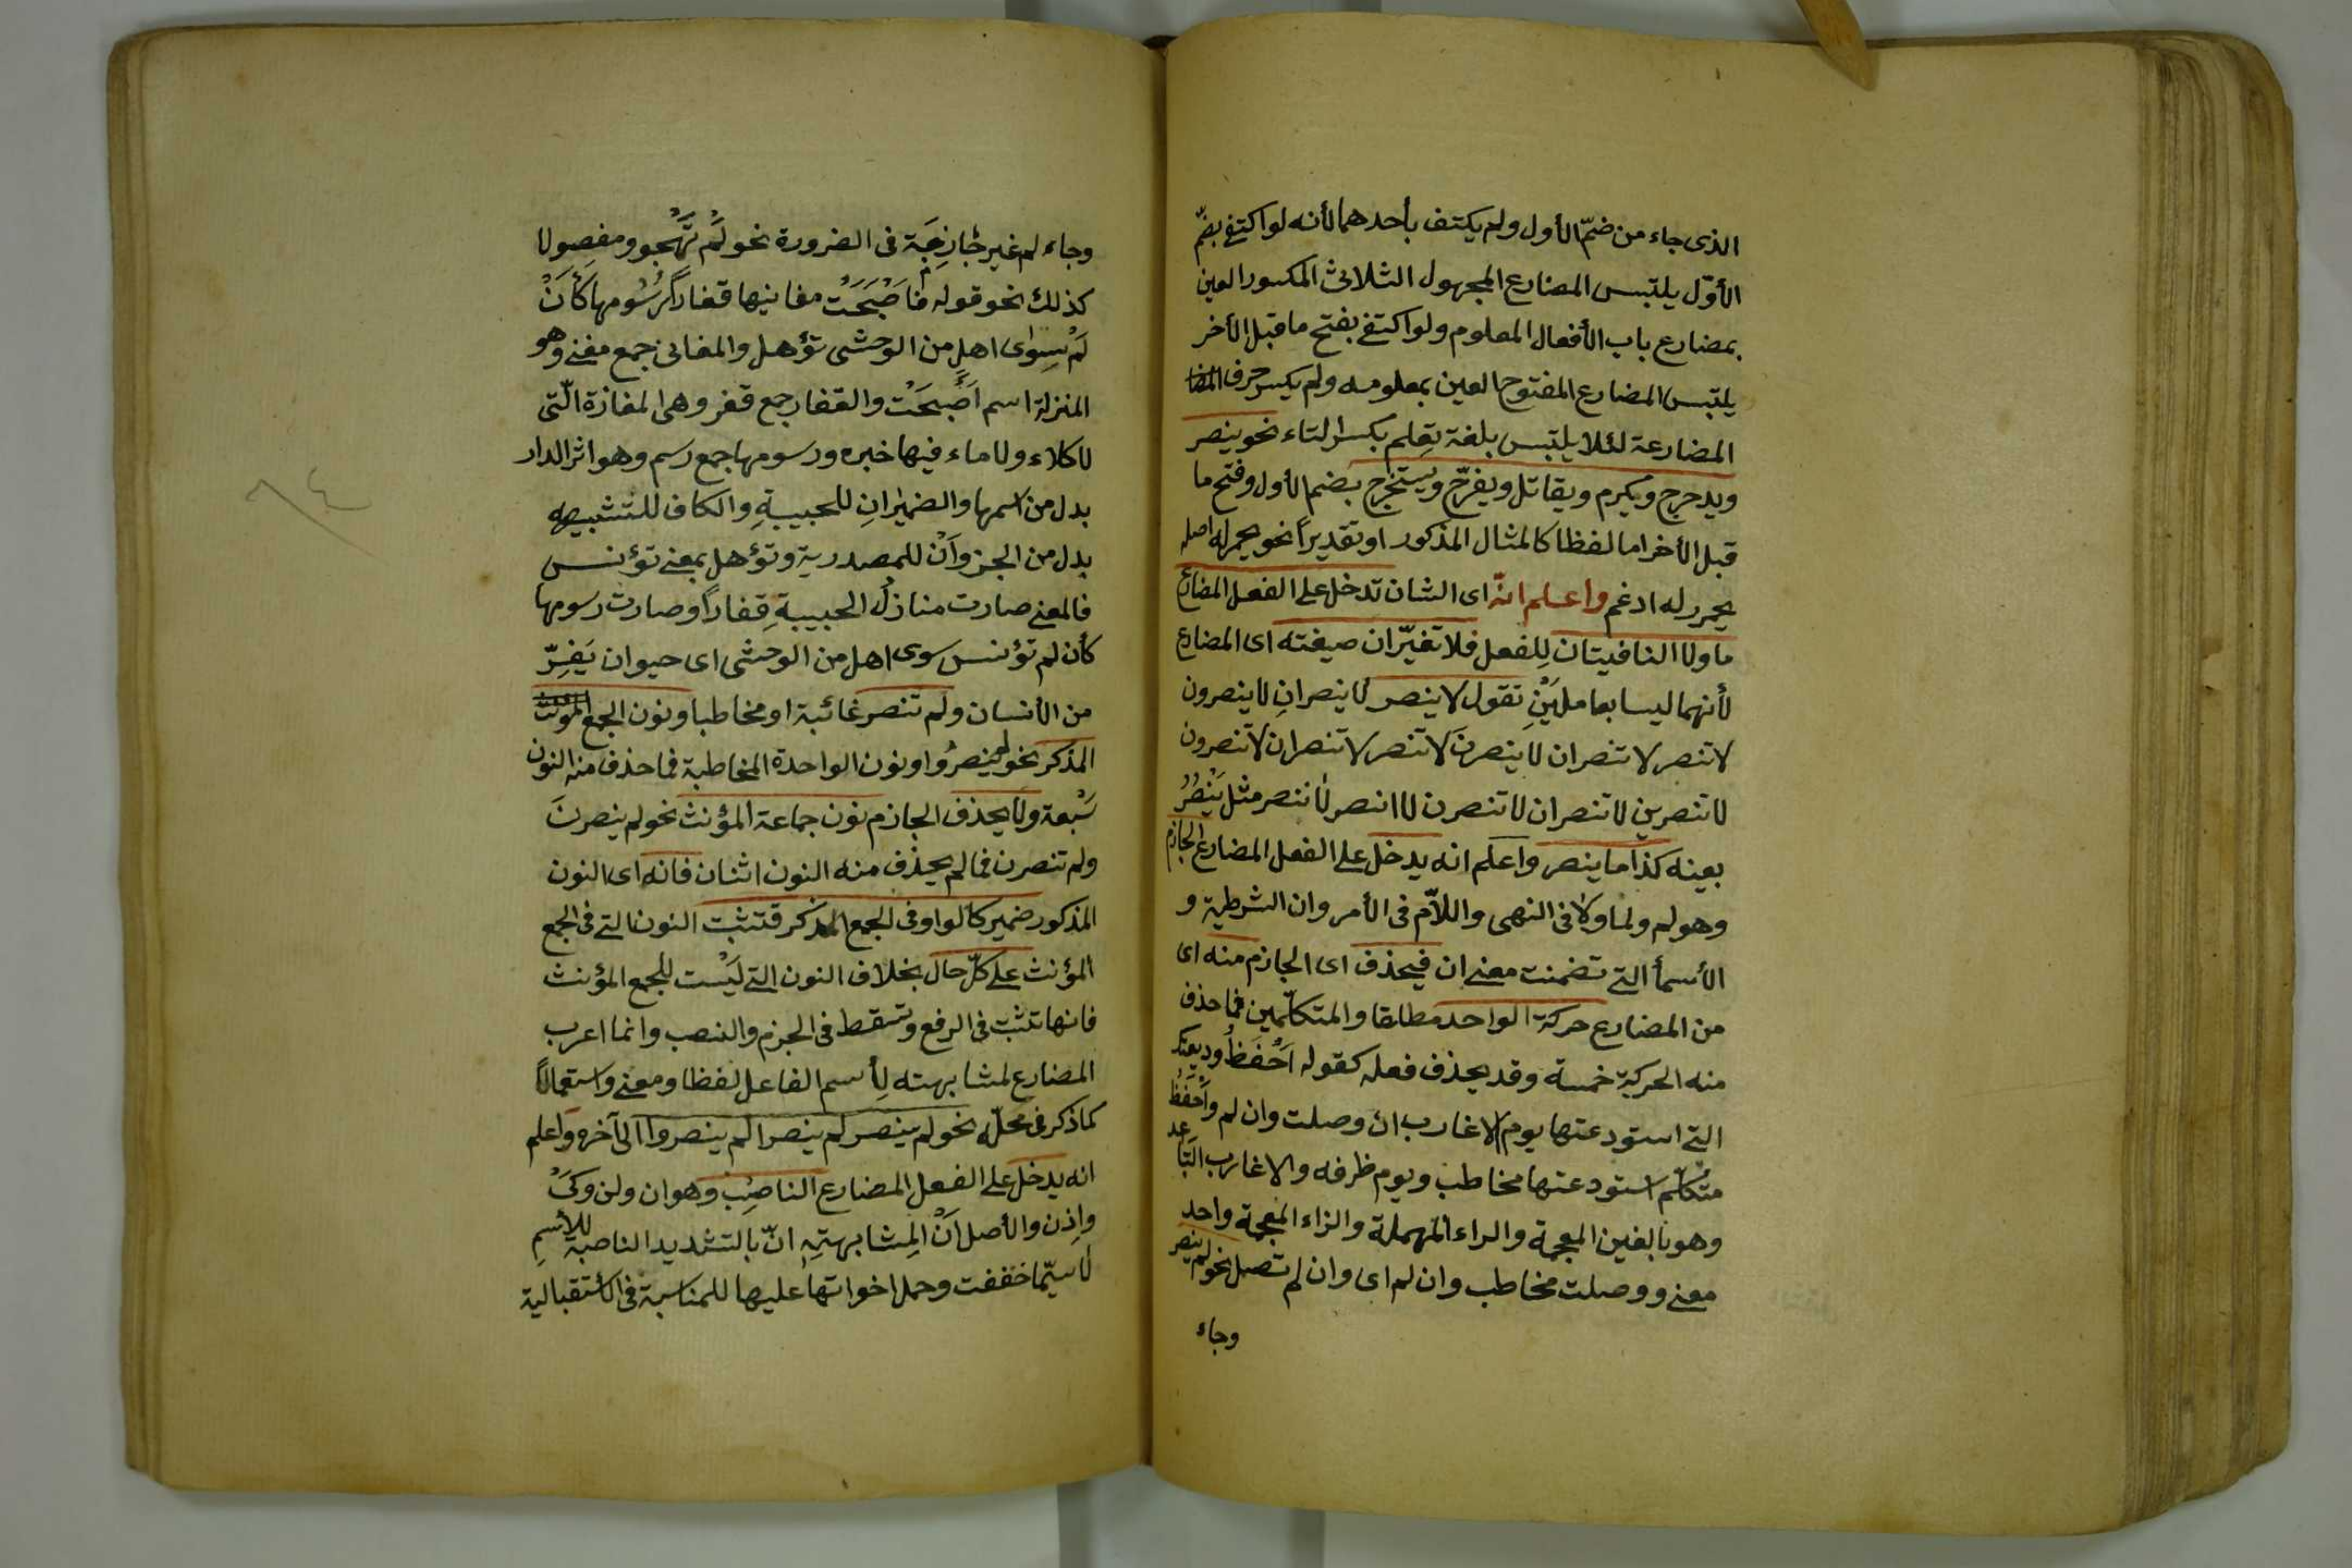 الذى جاء من ضمّ الأول ولم يكتف بأحدهما لأنه لو اكتفى بضمّ
الأوّل يلتبس المضارع المجهول الثلاثى المكسور العين
بمضارع باب الأفعال المعلوم ولو اكتفى بفتح ما قبل الأخر
يلتبس المضارع المفتوح العين بمعلومه ولم يكسر حرف
المضارعة لئلا يلتبس بلغة تِعلم بكسر التاء نحو ينصر
ويدحرج ويكرم ويقاتل ويفرّح ويستخرج بضم الأول وفتح ما
قبل الأخر اما لفظا كالمثال المذكور او تقديراً نحو يحمر له اصله
يحمرر له ادغم واعلم انّه اى الشان تدخل على الفعل المضارع
ما ولا النافيتان لِلفعل فلا تغيّران صيغته اى المضارع
لأنهما ليسا بعاملَيْنِ تقول لا ينصر لا ينصرانِ لا ينصرون
لا تنصر لا تنصران لا ينصرنَ لا تنصر لا تنصران لا تنصرون
لا تنصرين لا تنصران لا تنصرن لا انصر لا ننصر مثل يَنْصُرُ
بعينه كذا ما ينصر واعلم انه يدخل على الفعل المضارع الجازم
وهو لم ولما ولا فى النهى واللاّم فى الأمر وان الشرطية و
الأسمأ التى تضمنت معنى ان فيحذف اى الجازم منه اى
من المضارع حركة الواحد مطلقا والمتكلّمين فما حذف
منه الحركة خمسة وقد يحذف فعله كقوله اَحْفَظُ وديعتك
التى استودعتها يوم الاغارب ان وصلت وان لم واَحْفَظُ
متكلّم استودعتها مخاطب ويوم ظرفه والاغارب التباعد
وهو بالغين المعجمة والراء المهملة والزاء المعجمة واحد
معنى ووصلت مخاطب وان لم اى وان لم تصل نحو لم ينصر
وجاء
وجاء لم غير جَازِمَة فى الضرورة نحو لَمْ تَهْجُو ومفصولا
كذلك نحو قوله فَاَصْبَحَتْ مغانيها قفار رُسُومها كَأَنْ
لَمْ سِوٰى اهلٍ من الوحشى تؤهل والمغانى جمع مغنى وهو
المنزلة اسم اَصْبَحَتْ والقفار جمع قفر وهى المفازة الّتى
لا كلاء ولا ماء فيها خبره ورسومها جمع رسم وهو اثر الدار
بدل من اسمها والضميرانِ للحبيبةِ والكاف للتشبيه
بدل من الجز واَنْ للمصدرية وتؤهل بمعنى تؤنس
فالمعنى صارت منازلُ الحبيبةِ قِفاراً وصارت رسومها
كأن لم تؤنس سوى اهل من الوحشى اى حيوان يَفِرّ
من الأنسان ولم تنصر غائبة او مخاطبا ونون الجمع
المذكر نحو لم ينصرُوا ونون الواحدة المخاطبة فما حذف منه النون
سَبْعة ولا يحذف الجازم نون جماعة المؤنث نحو لم ينصرنَ
ولم تنصرن فما لم يحذف منه النون اثنان فانه اى النون
المذكور ضمير كالواو فى الجمع المذكر فتثبت النون التى فى الجمع
المؤنث على كلّ حال بخلاف النون التى لَيْست للجمع المؤنث
فانها تثبت فى الرفع وتسقط فى الجزم والنصب وانما اعرب
المضارع لمشابهته لِأسم الفاعل لفظا ومعنى واستعمالاً
كما ذكر فى محلّه نحو لم ينصر لم ينصرا لم ينصروا الى آخره واعلم
انه يدخل على الفعل المضارع الناصِب وهو ان ولن وكَىْ
واِذن والأصل اَنْ لمِشابهتهِ انّ بالتشديد الناصبة للأسمِ
لا سيّما خففت وحمل اخواتها عليها للمناسبة فى الأستقبالية